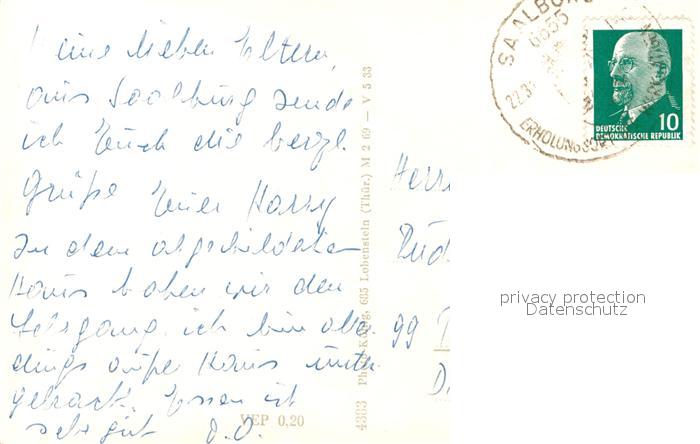 Meine lieben Eltern,
aus Saalburg sende
ich Euch die herzl.
Grüße Euer Harry
In dem abgebildeten
Haus haben wir den
Lehrgang, ich bin aller-
dings außer Haus unter-
gebracht. Essen ist
sehr gut D.O.
VEP 0,20
4383 Photo-König, 685 Lobenstein (Thür.) M 2 69 — V 5 33
SAALBURG
6555
22.3
ERHOLUNGSORT
10
DEUTSCHE
DEMOKRATISCHE REPUBLIK
Herrn
Rud
99
privacy protection
Datenschutz